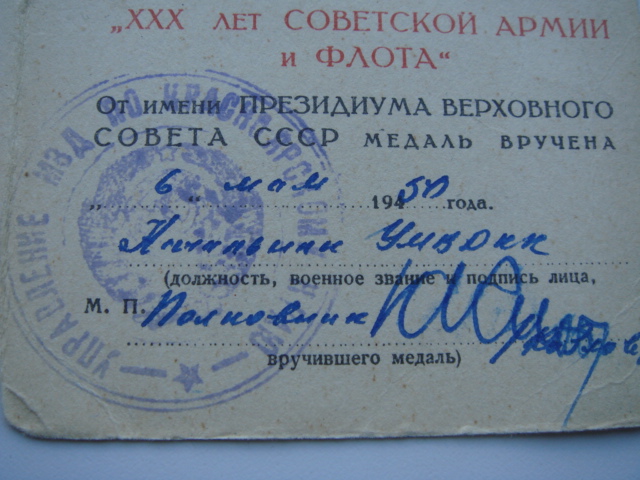 „XXX ЛЕТ СОВЕТСКОЙ АРМИИ
И ФЛОТА“
ОТ ИМЕНИ ПРЕЗИДИУМА ВЕРХОВНОГО
СОВЕТА СССР МЕДАЛЬ ВРУЧЕНА
„ 6 “ мая 1950 года.
Начальник УМВДКК
(должность, военное звание и подпись лица,
М. П. Полковник
вручившего медаль)
УПРАВЛЕНИЕ МВД ПО КРАСНОЯРСКОМУ